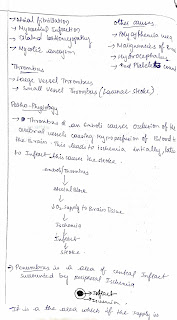 → Atrial fibrillation
→ Myocardial Infarction
→ Dilated
→ Mycotic aneurysm
other causes
→ Polycythemia
→ Malignancies of
→ Hydrocephalus
→ Platelets
Thrombus
→ Large Vessel Thrombus
→ Small Vessel Thrombus (Lacunar stroke)
Patho-Physiology
→ Thrombus or an emboli causes occlusion of the
arterial vessels causing hypoperfusion of blood to
the brain. This leads to Ischemia initially, later
to Infarct. This causes the stroke.
Emboli/Thrombus
↓
↓
↓O₂ supply to Brain tissue
↓
Ischemia
↓
Infarct
↓
Stroke
→ Penumbra is a area of central Infarct
surrounded by peripheral Ischemia
→ Infarct
→ Ischemia
→ It is a the area which if the supply is